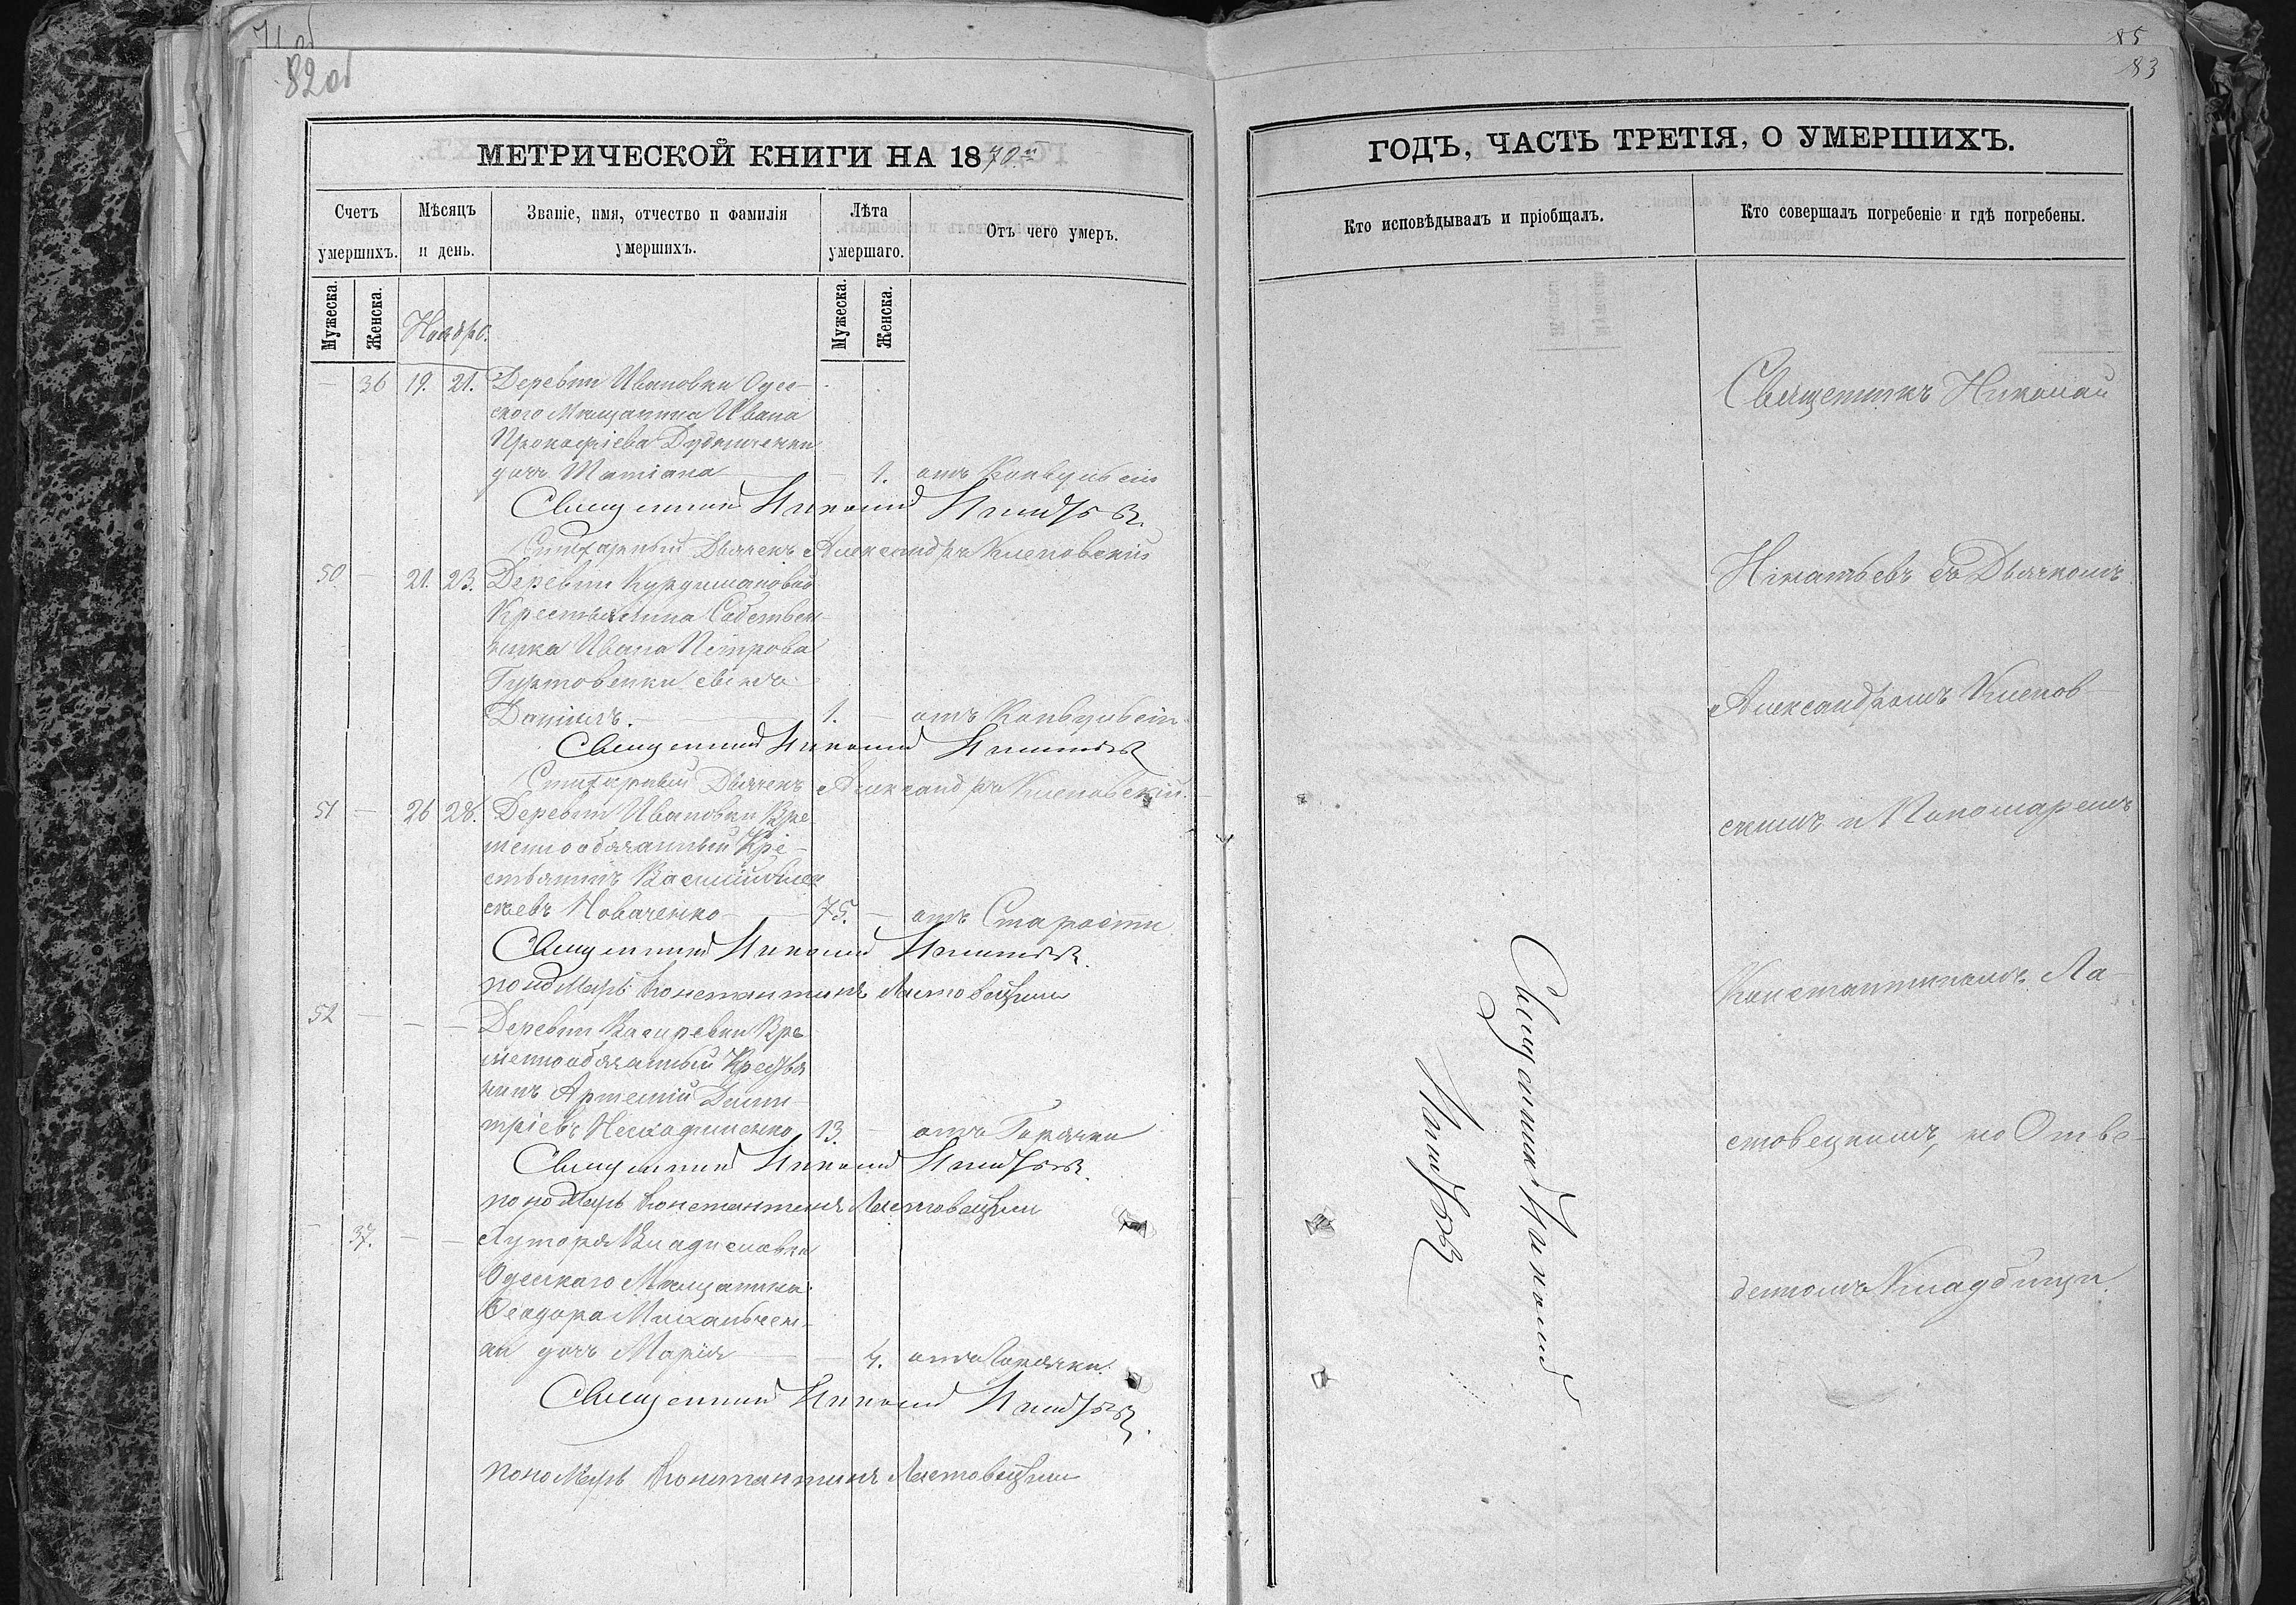 82об
МЕТРИЧЕСКОЙ КНИГИ НА 1870й
Счетъ умершихъ.
Мѣсяцъ и день.
Званіе, имя, отчество и фамилія умершихъ.
Лѣта умершаго.
Отъ чего умеръ.
Мужеска.
Женска.
Ноябрь.
Мужеска.
Женска.
— 36 19. 21. Деревни Ивановки Одес-
скаго Мѣщанина Ивана
Прокофіева
дочь Татіана — 1. отъ Конвульсіи
Священникъ Николай Игнатьевъ
Стихарный Дьячекъ Александръ Клеповскій
50 — 21. 23. Деревни
Крестьянина Собствен-
ника Ивана Петрова
Гуртовенки сынъ
Даніилъ. — 1. — отъ Конвульсіи
Священникъ Николай Игнатьевъ
Стихарный Дьячекъ Александръ Клеповскій.
51 — 26 28. Деревни Ивановки Вре-
меннообязанный Кре-
стьянинъ Василій Алек-
сѣевъ Новаченко — 75. — отъ Старости
Священникъ Николай Игнатьевъ.
пономарь Константинъ Ластовецкий
52 — — — Деревни Вре-
меннообязанный Крестья
нинъ Артемій Дими-
тріевъ 13. — отъ Горячки
Священникъ Николай Игнатьевъ.
пономарь Константинъ Ластовецкий
— 37. — — Хутора Владиславки
Одесскаго Мѣщанина
Ѳеодора Михальчен-
ки дочь Марія — 4. отъ Горячки.
Священникъ Николай Игнатьевъ.
пономарь Константинъ Ластовецкий
85
83
ГОДЪ, ЧАСТЬ ТРЕТІЯ, О УМЕРШИХЪ.
Кто исповѣдывалъ и пріобщалъ.
Кто совершалъ погребеніе и гдѣ погребены.
Священникъ Николай
Игнатьевъ
Священникъ Николай
Игнатьевъ съ Дьячкомъ
Александромъ Клепов-
скимъ и Пономаремъ
Константиномъ Ла-
стовецкимъ, на Отве-
денномъ Кладбищи.